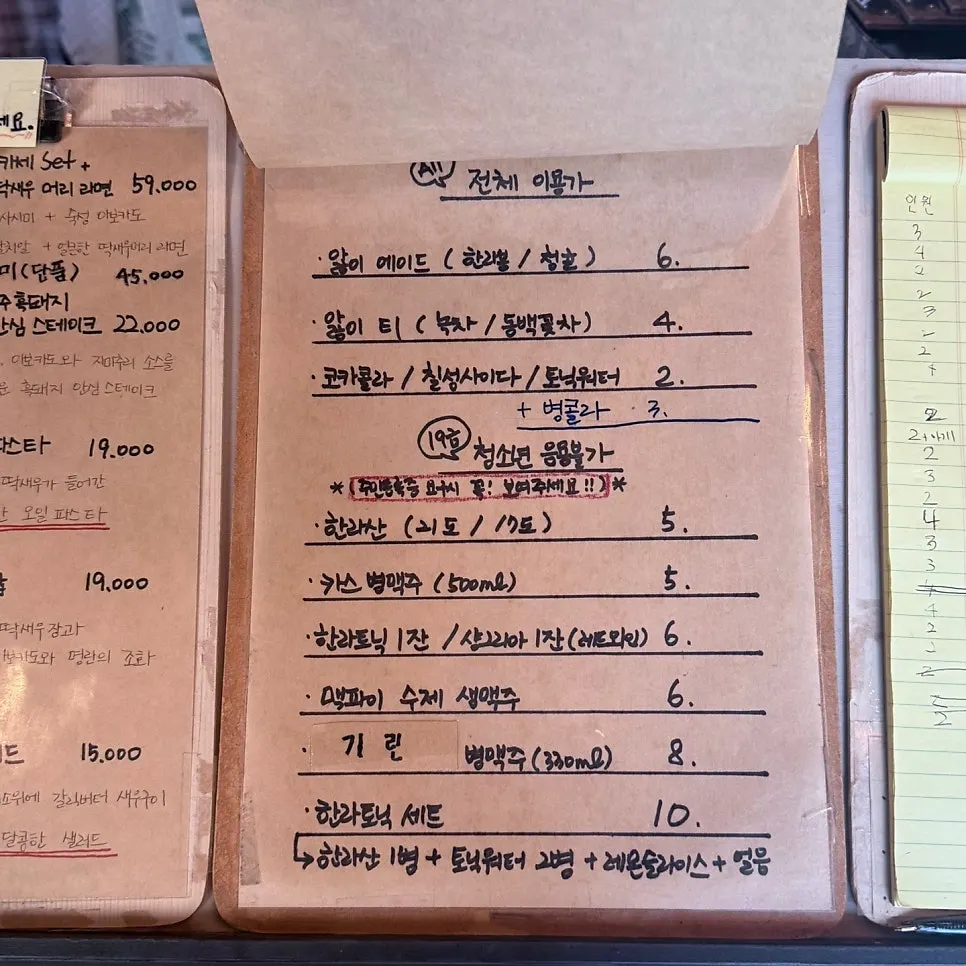 세요.
카세 Set +
딱새우 머리 라면 59.000
사시미 + 숙성 아보카도
날치알 + 얼큰한 딱새우머리 라면
미(단품) 45.000
주 흑돼지
안심 스테이크 22.000
아보카도와 치미추리 소스를
흑돼지 안심 스테이크
파스타 19.000
딱새우가 들어간
오일 파스타
19.000
딱새우장과
아보카도와 명란의 조화
15.000
소위에 갈릭버터 새우구이
달콤한 샐러드
All 전체 이용가
· 앓이 에이드 ( 한라봉 / 청귤 ) 6.
· 앓이 티 ( 녹차 / 동백꽃차 ) 4.
· 코카콜라 / 칠성사이다 / 토닉워터 2.
+ 병콜라 · 3.
19금 청소년 음용불가
* (주민등록증 요구시 꼭! 보여주세요!!) *
· 한라산 (21도 / 17도) 5.
· 카스 병맥주 (500ml) 5.
· 한라토닉 1잔 / 샹그리아 1잔 (레드와인) 6.
· 맥파이 수제 생맥주 6.
· 기린 병맥주 (330ml) 8.
· 한라토닉 세트 10.
→ 한라산 1병 + 토닉워터 2병 + 레몬슬라이스 + 얼음
인원
3
4
2
2
3
2
2
2
2+아기
2
3
2
4
3
3
4
4
2
2
2
2
2